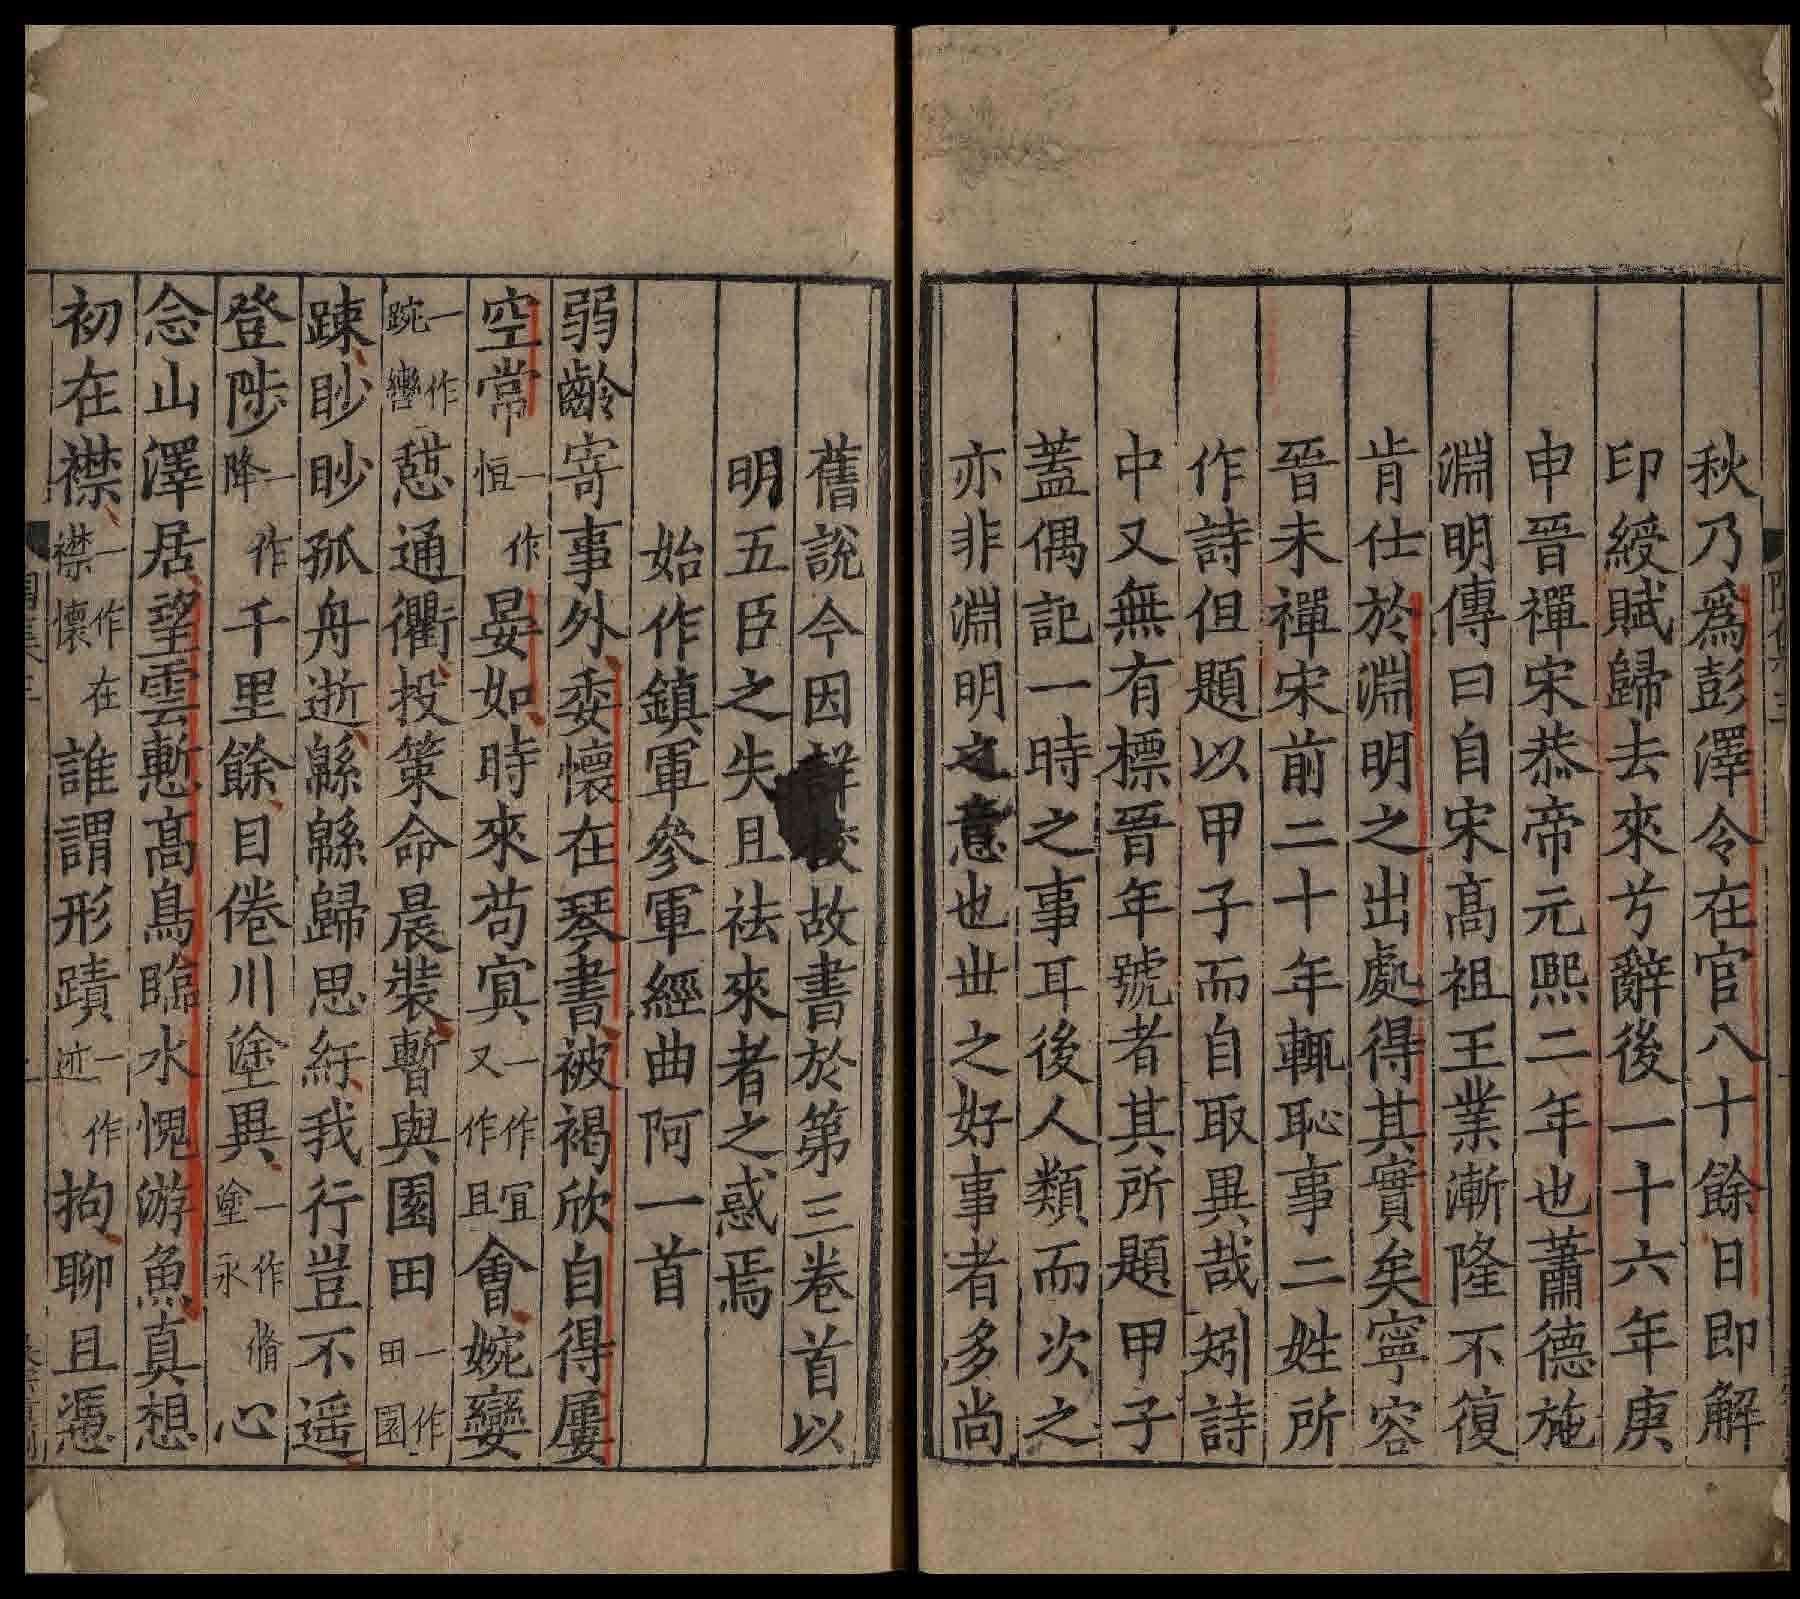 秋乃爲彭澤令在官八十餘日即解
印綬賦歸去來兮辭後一十六年庚
申晉禪宋恭帝元熙二年也蕭德施
淵明傳曰自宋高祖王業漸隆不復
肯仕於淵明之出處得其實矣寧容
晉未禪宋前二十年輒恥事二姓所
作詩但題以甲子而自取異哉矧詩
中又無有標晉年號者其所題甲子
蓋偶記一時之事耳後人類而次之
亦非淵明之意也丗之好事者多尚
舊說今因故書於第三卷首以
明五臣之失且祛來者之惑焉
始作鎮軍參軍經曲阿一首
弱齡寄事外委懷在琴書被褐欣自得屢
空常一作恒晏如時來苟㝠一作宜又作且會婉孌
一作踠轡憇通衢投策命晨裝暫與園田一作田園
踈眇眇孤舟逝緜緜歸思紆我行豈不遥
登陟一作降千里餘目倦川塗異一作脩塗永心
念山澤居望雲慙高鳥臨水愧游魚真想
初在襟一作在襟懷誰謂形蹟一作迹拘聊且憑